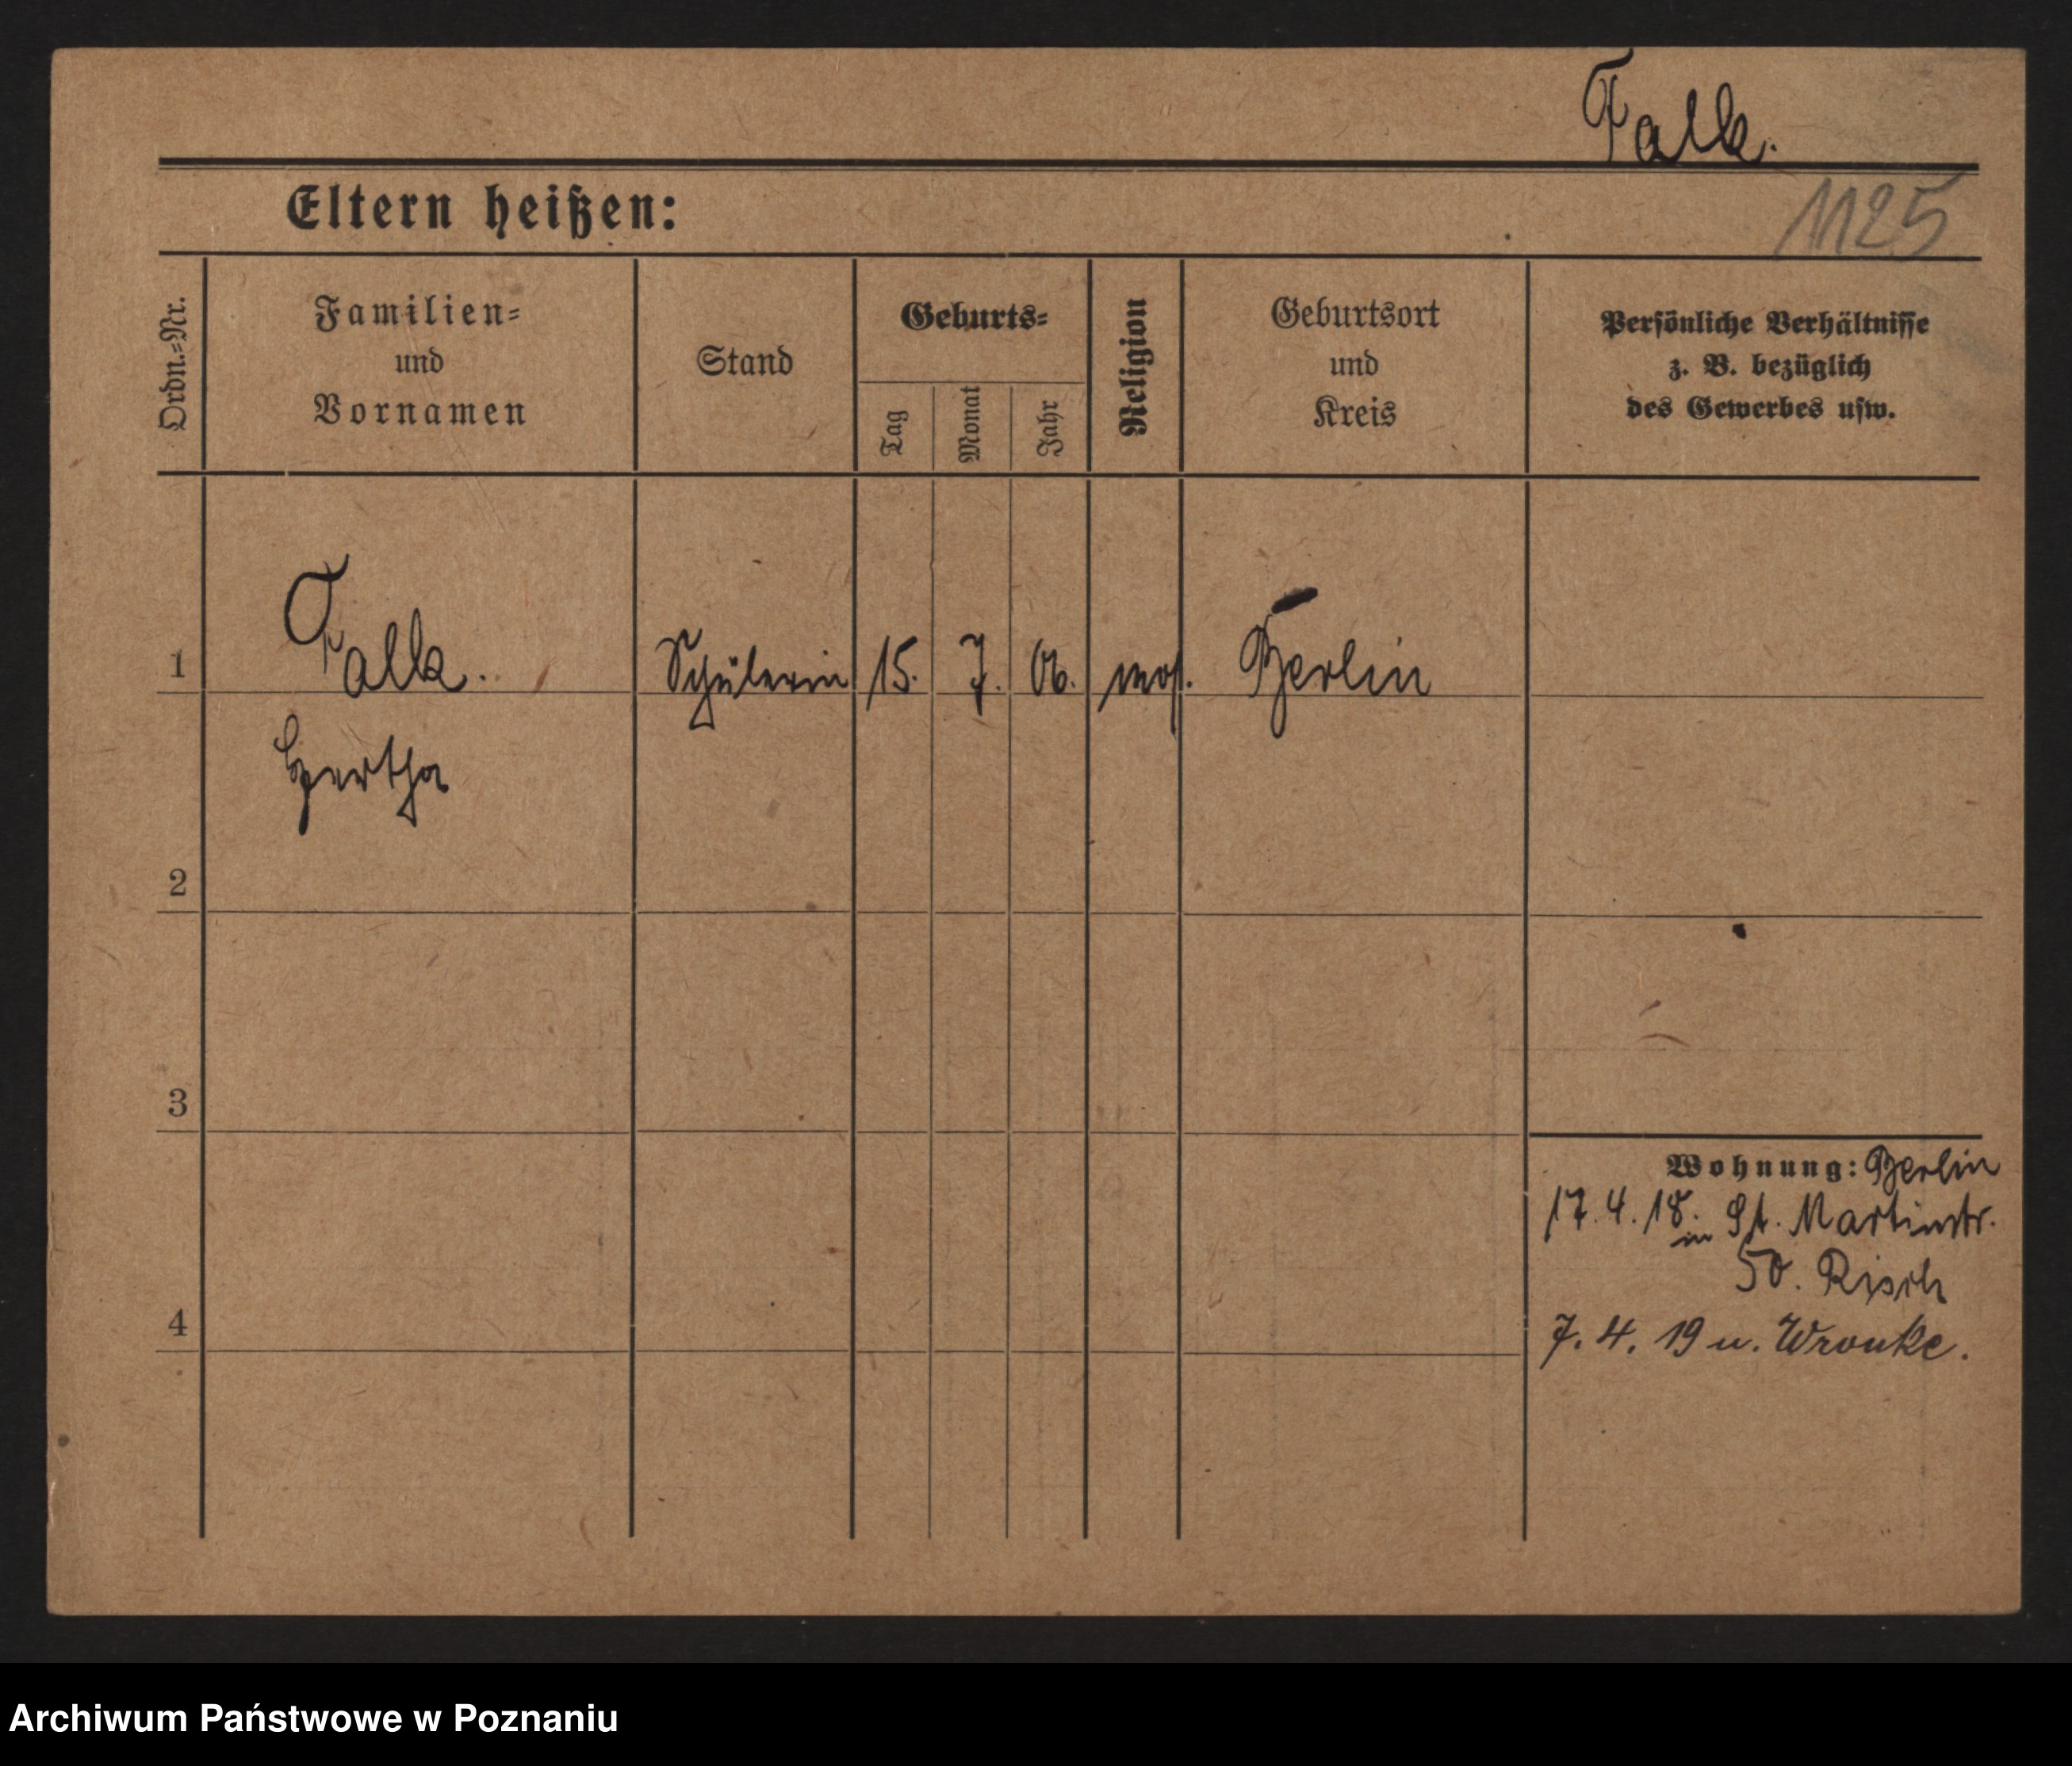 Falk.
Eltern heißen:
1125
Ordn.=Nr.
Familien=
und
Vornamen
Stand
Geburts=
Tag
Monat
Jahr
Religion
Geburtsort
und
Kreis
Persönliche Verhältnisse
z. B. bezüglich
des Gewerbes usw.
1
Falk.
Schülerin
15.
7.
06.
mos.
Berlin
Hertha
2
3
4
Wohnung: Berlin
17. 4. 18. in St. Martinstr.
50. Risch
7. 4. 19 u. Wronke.
Archiwum Państwowe w Poznaniu